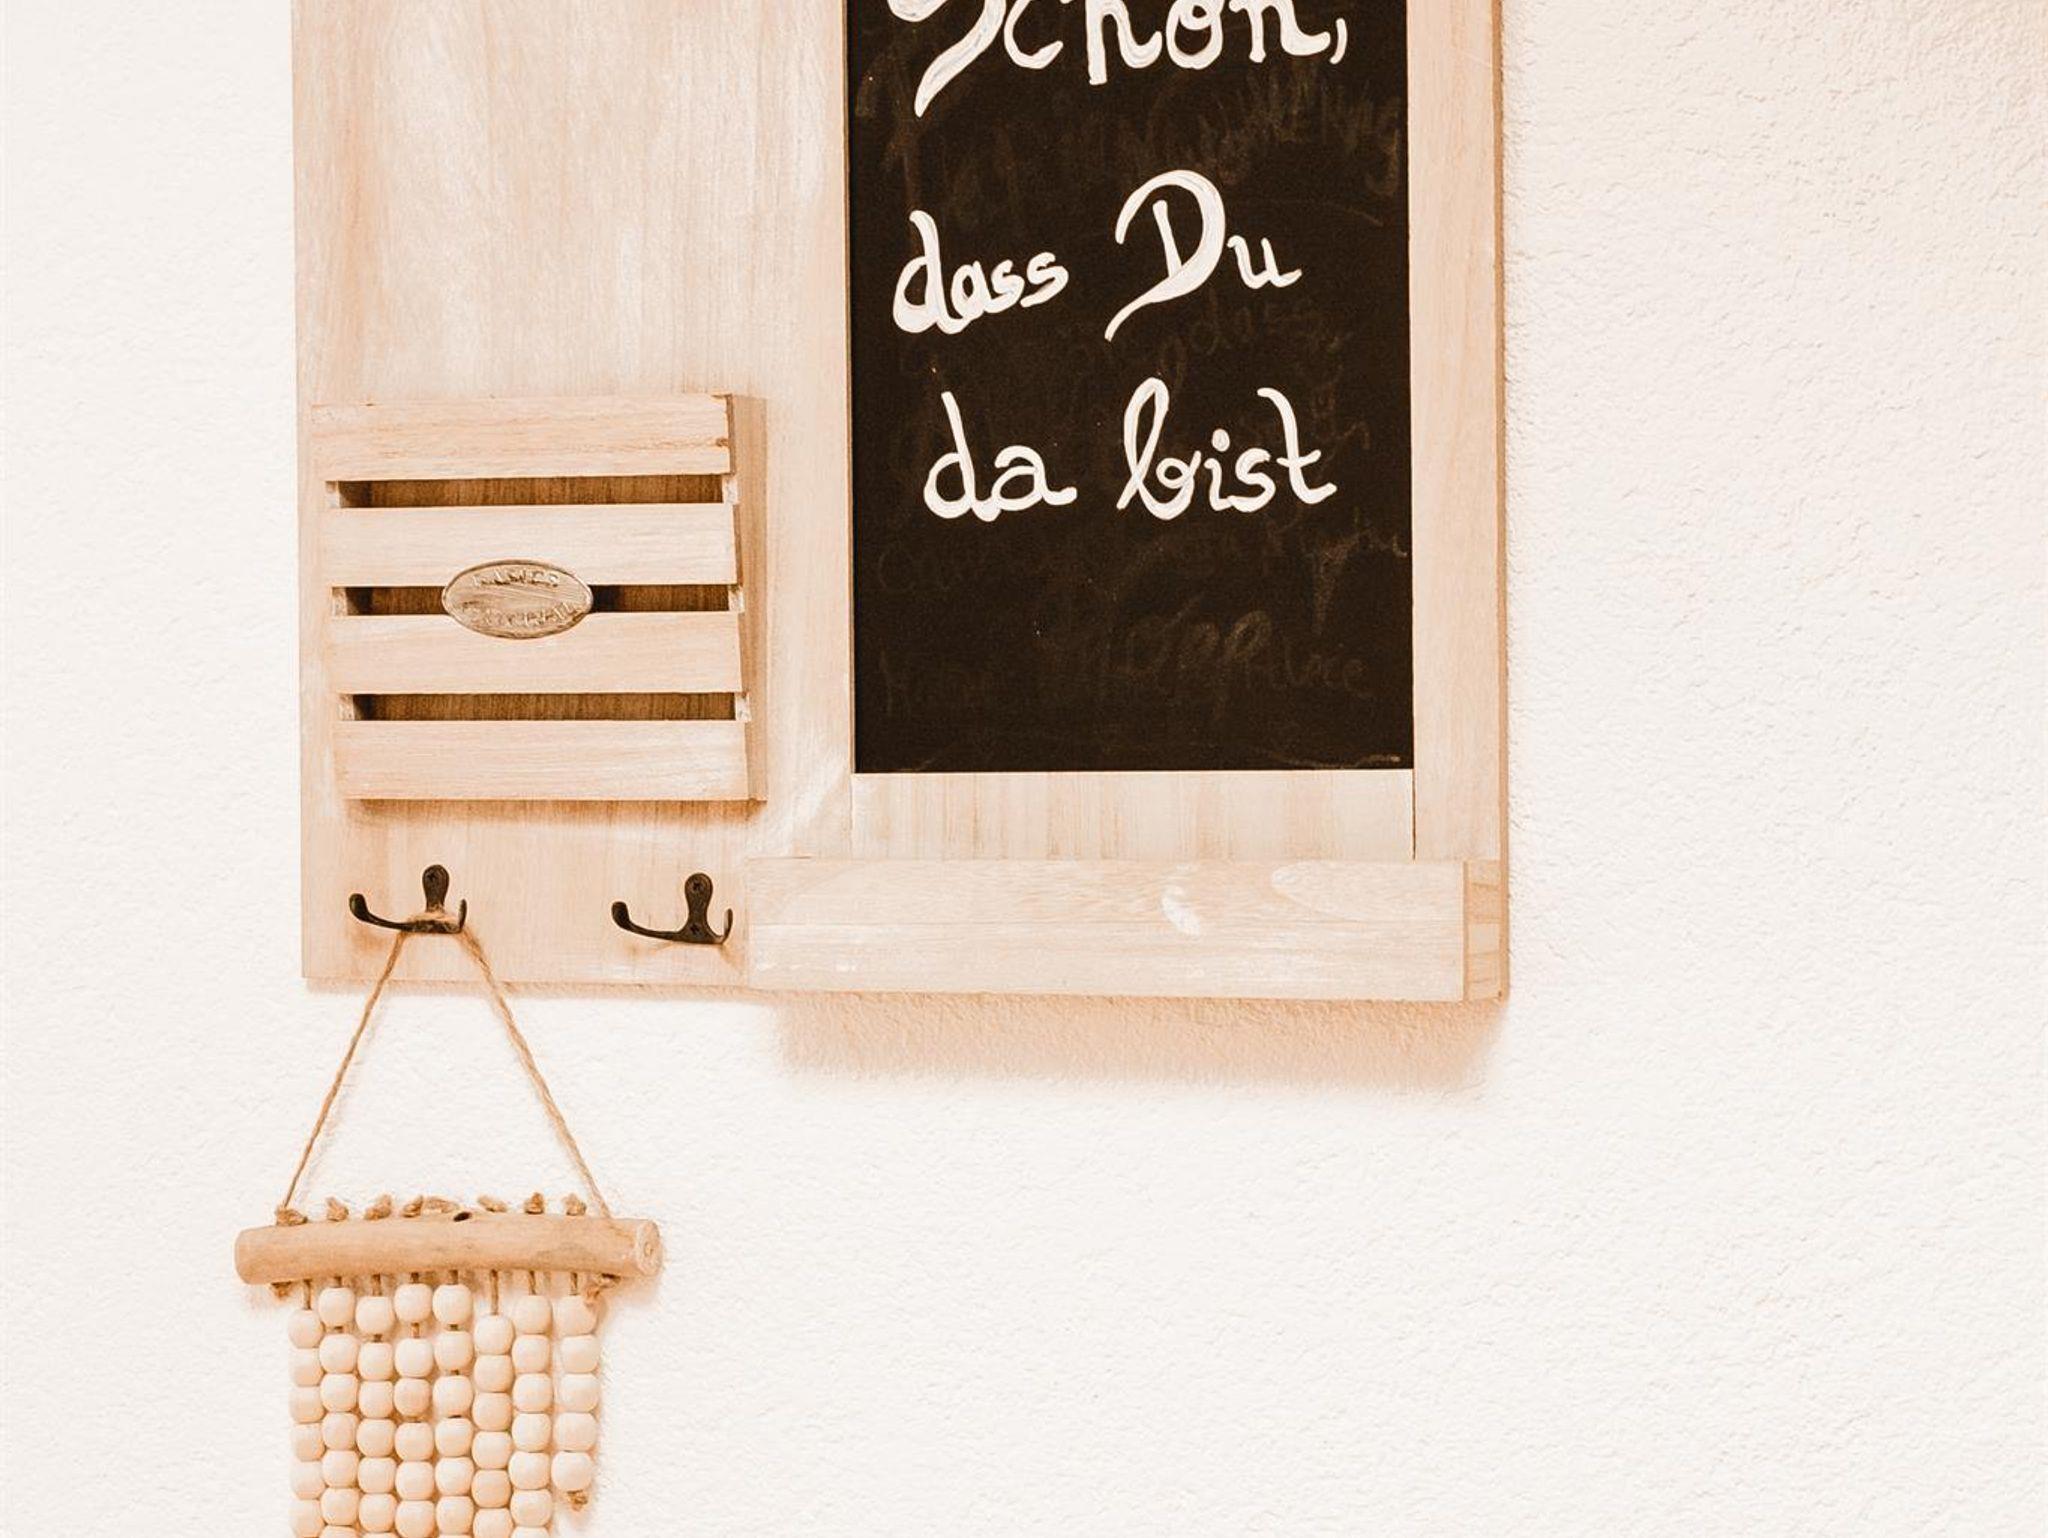 Schön,
dass Du
da bist